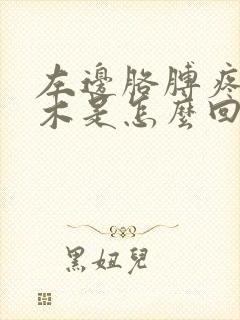 左邊胳膊疼
木是怎麼回
黑妞兒